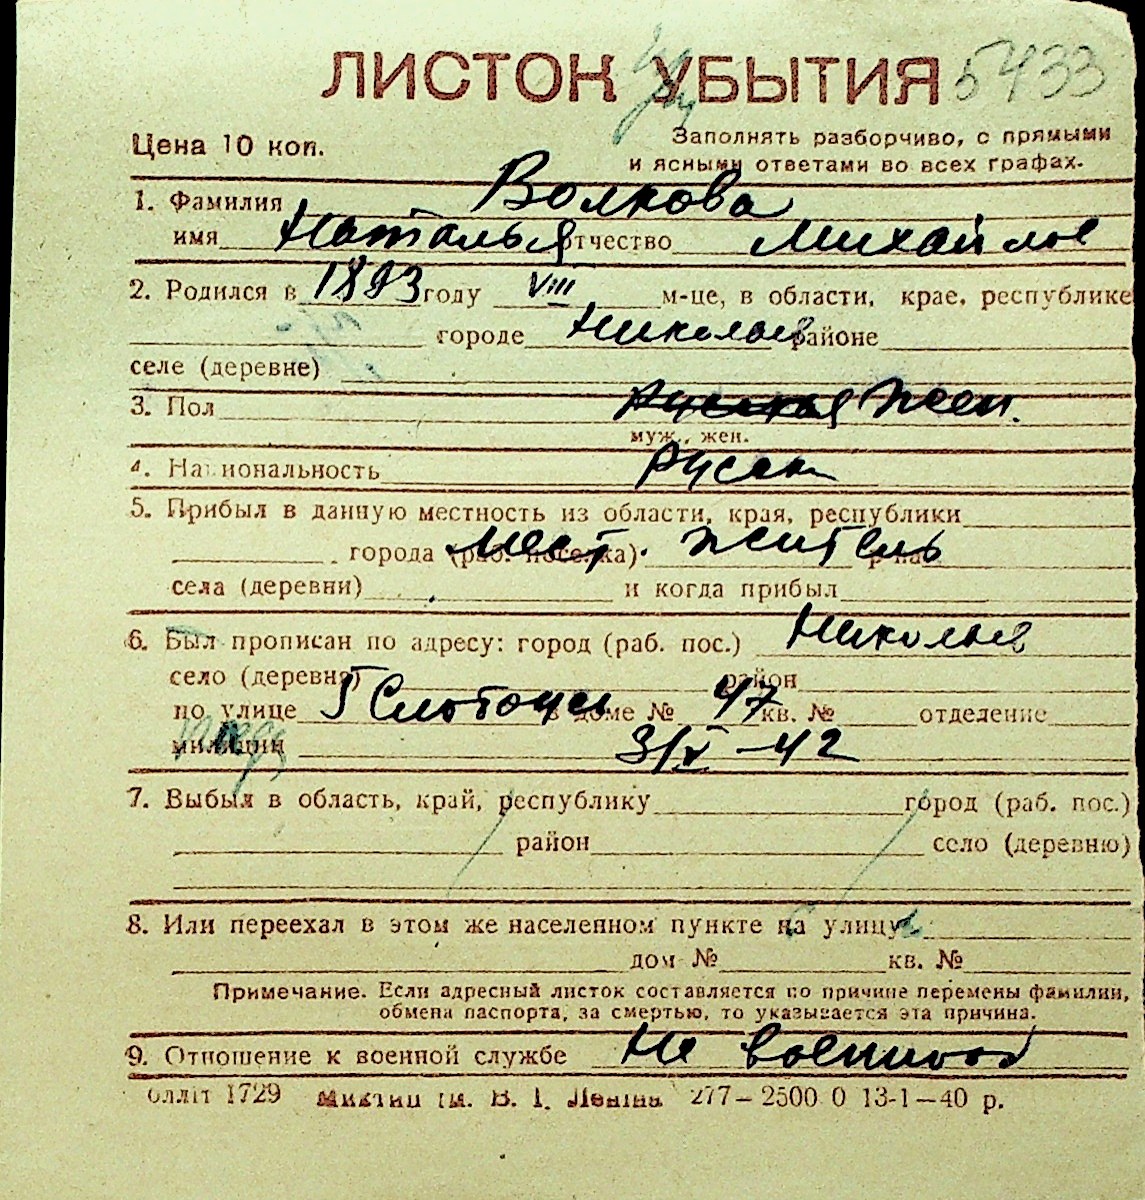 ЛИСТОК УБЫТИЯ 5433
Цена 10 коп. Заполнять разборчиво, с прямыми
и ясными ответами во всех графах.
1. Фамилия Волкова
имя Наталья отчество Михайлов
2. Родился в 1893 году VIII м-це, в области, крае, республике
городе Николаев районе
селе (деревне)
3. Пол Русская Жен.
муж., жен.
4. Национальность Русск
5. Прибыл в данную местность из области, края, республики
города (раб. поселка) Мест. житель р-на
села (деревни) и когда прибыл
6. Был прописан по адресу: город (раб. пос.) Николаев
село (деревня) район
по улице 5 Слободск в доме № 47 кв. № отделение
милиции 3/V-42
7. Выбыл в область, край, республику город (раб. пос.)
район село (деревню)
8. Или переехал в этом же населенном пункте на улицу
дом № кв. №
Примечание. Если адресный листок составляется по причине перемены фамилии,
обмена паспорта, за смертью, то указывается эта причина.
9. Отношение к военной службе Не военнооб
оллiт 1729 iм. В. I. Ленiна 277—2500 0 13-1—40 р.